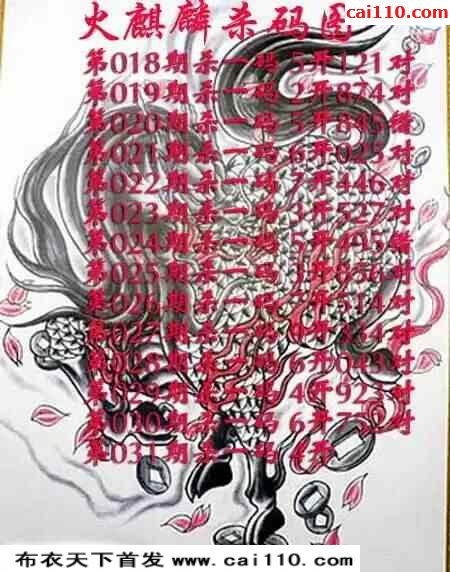 cai110.com
火麒麟杀码图
第018期杀一码 5开121对
第019期杀一码 2开874对
第020期杀一码 5开845错
第021期杀一码 6开025对
第022期杀一码 7开446对
第023期杀一码 3开527对
第024期杀一码 5开495错
第025期杀一码 开836对
第026期杀一码 开514对
第027期杀一码 开 对
第028期杀一码 6开043对
第029期杀一码 4开923对
第030期杀一码 6开 对
第031期杀一码 4开
布衣天下首发 www.cai110.com